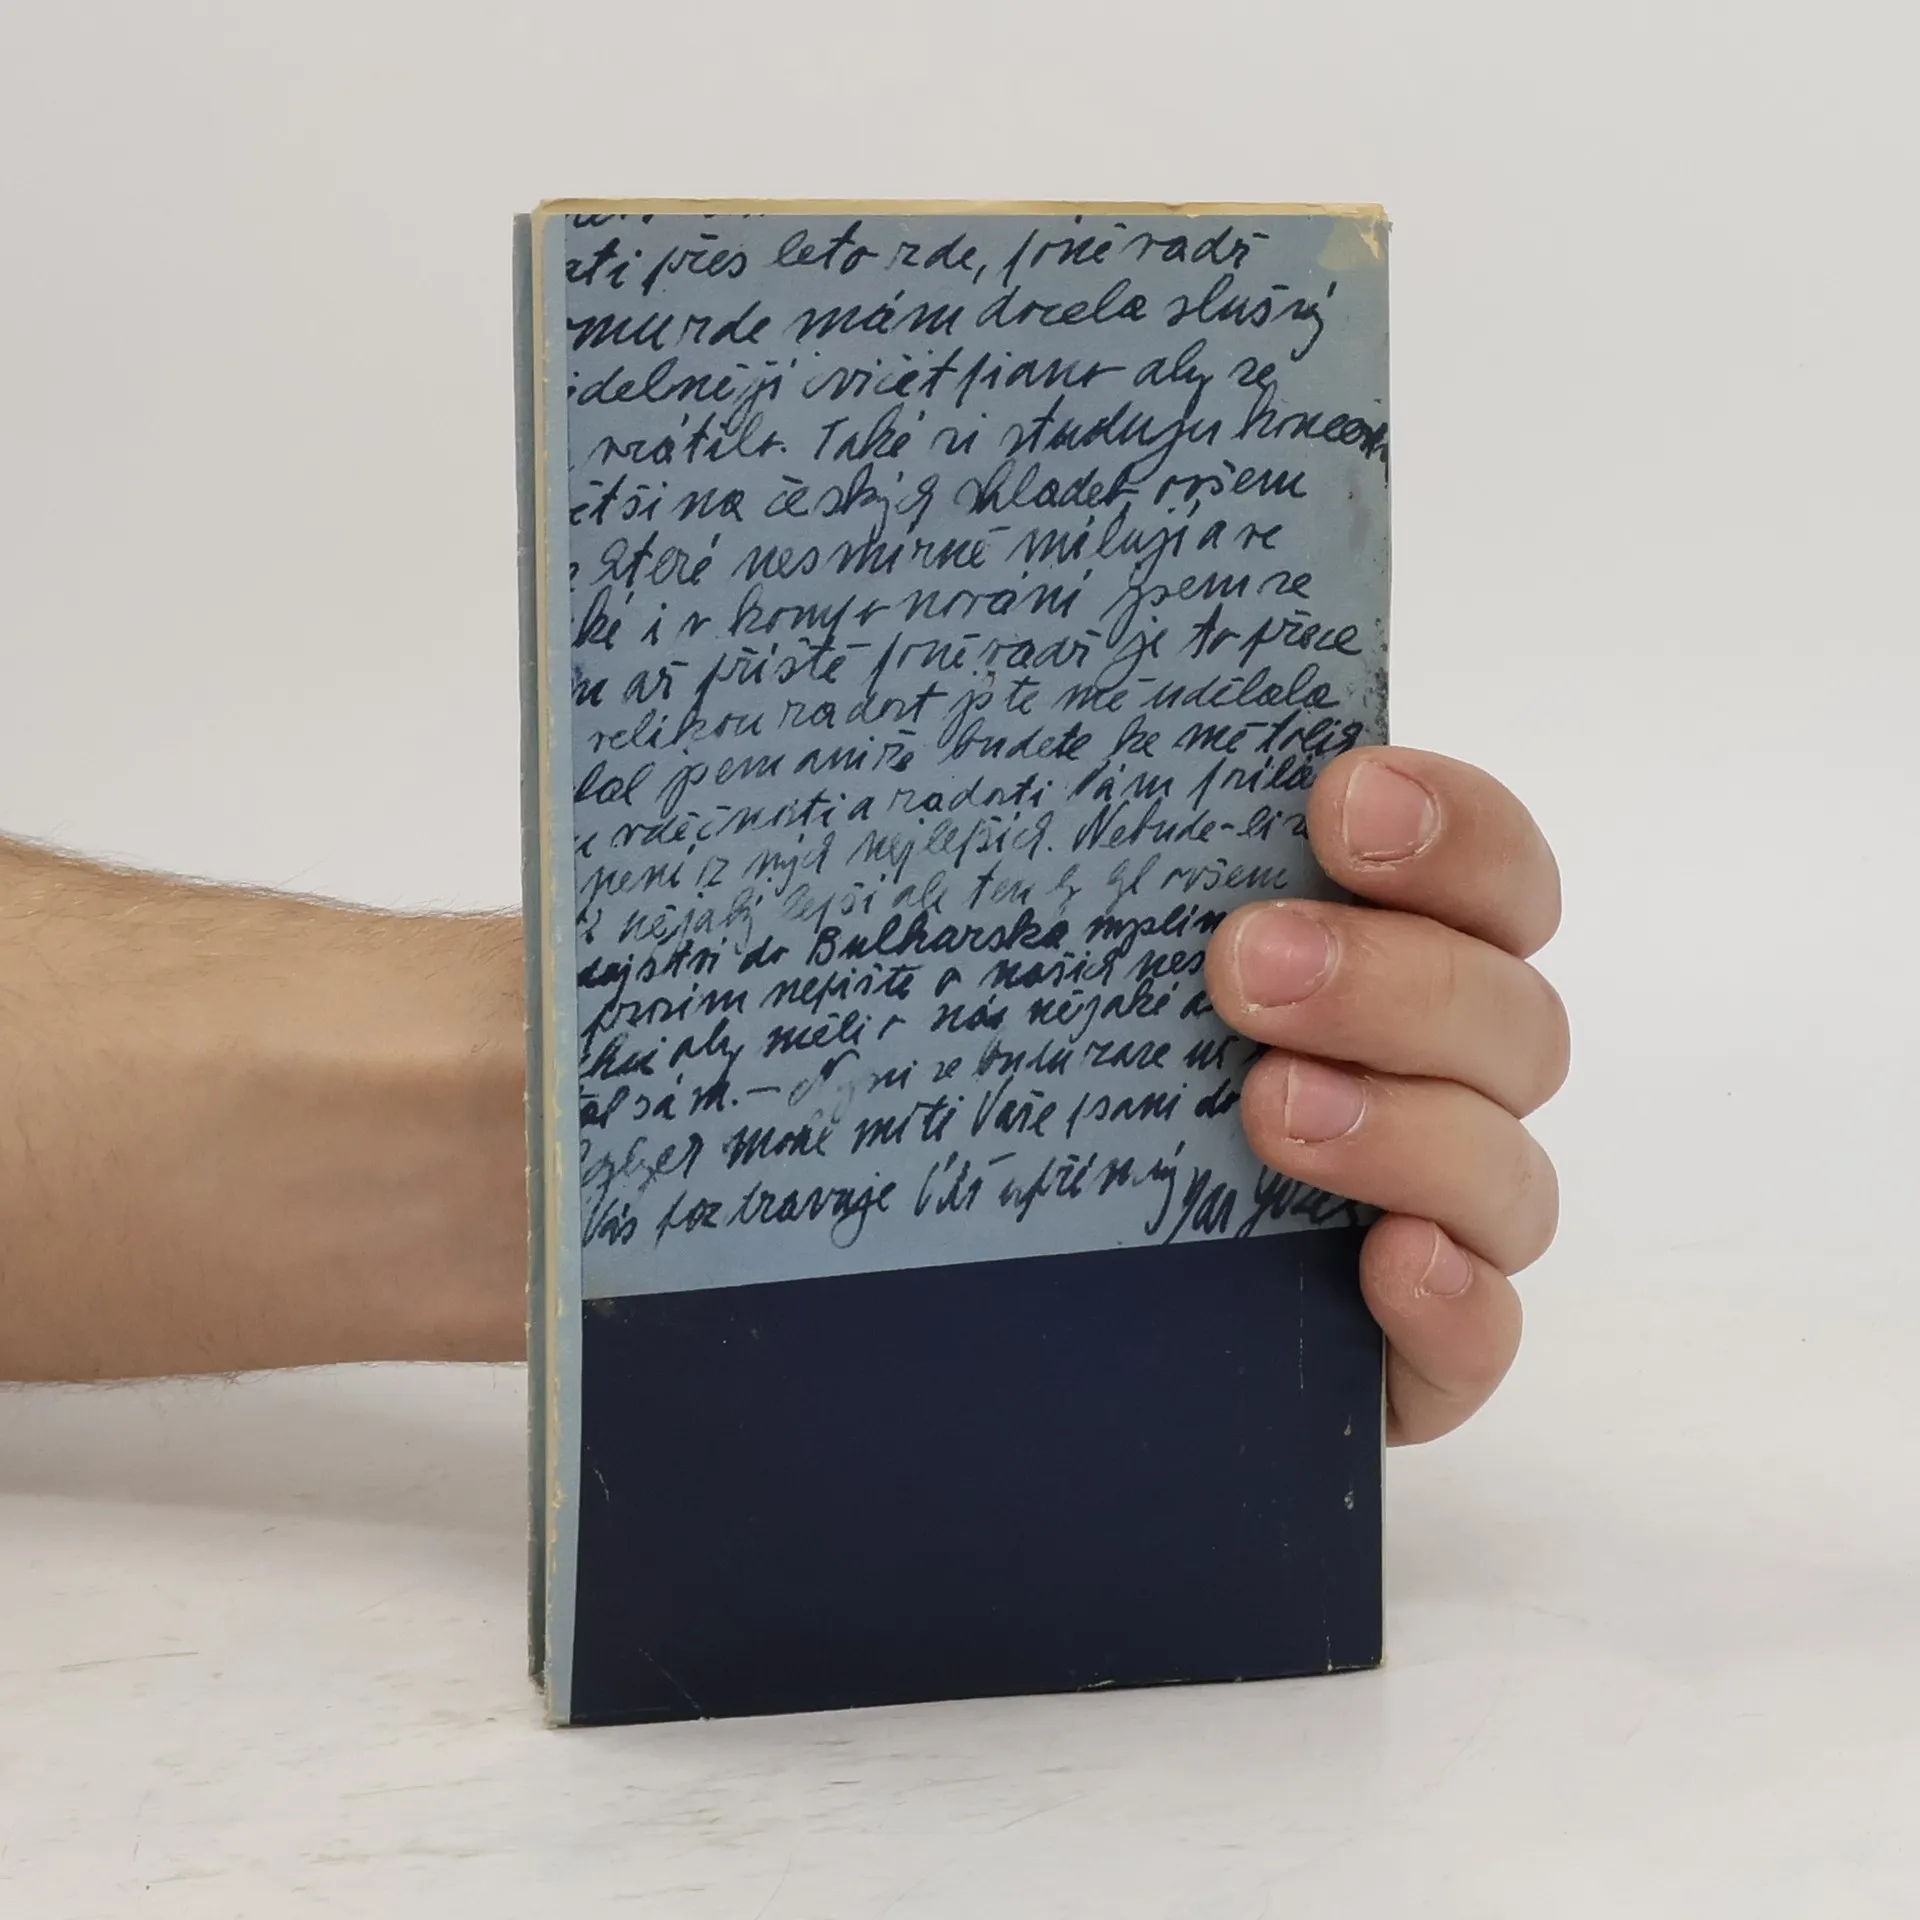 přes leto zde, poněvadž
mám docela slušný
idelněji cvičet piano aby se
vrátilo. Také si studuju koncert
ětšina českých skladeb ovšem
které nesmírně miluji a ve
ké i v komponování jsem se
m až příště poněvadž je to přece
velikou radost jste mě udělala
lal jsem ani že budete ke mě tolik
vděčnosti a radosti Vám
mých nejlepších. Nebude-li
nějaký lepší ale ten ovšem
do Bulharska myslím
prosím nepište o našich nes
aby měli o nás nějaké
sám. — Nyní se budu zase
moné míti Vaše psaní do
Vás pozdravuje Váš upřímný Jan